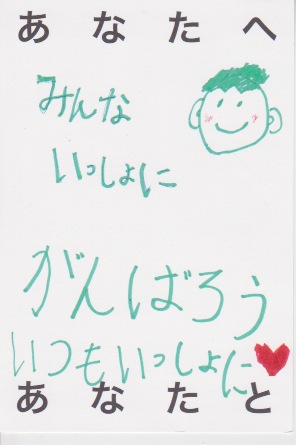 あなたへ
みんな
いっしょに
がんばろう
いつもいっしょに
あなたと